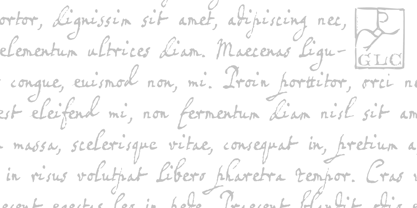 ortor, dignissim sit amet, adipiscing nec,
elementum ultrices diam. Maecenas ligu-
congue, euismod non, mi. Proin porttitor, orci ne
est eleifend mi, non fermentum diam nisl sit am
massa, scelerisque vitae, consequat in, pretium a
in risus volutpat libero pharetra tempor. Cras v
GLC